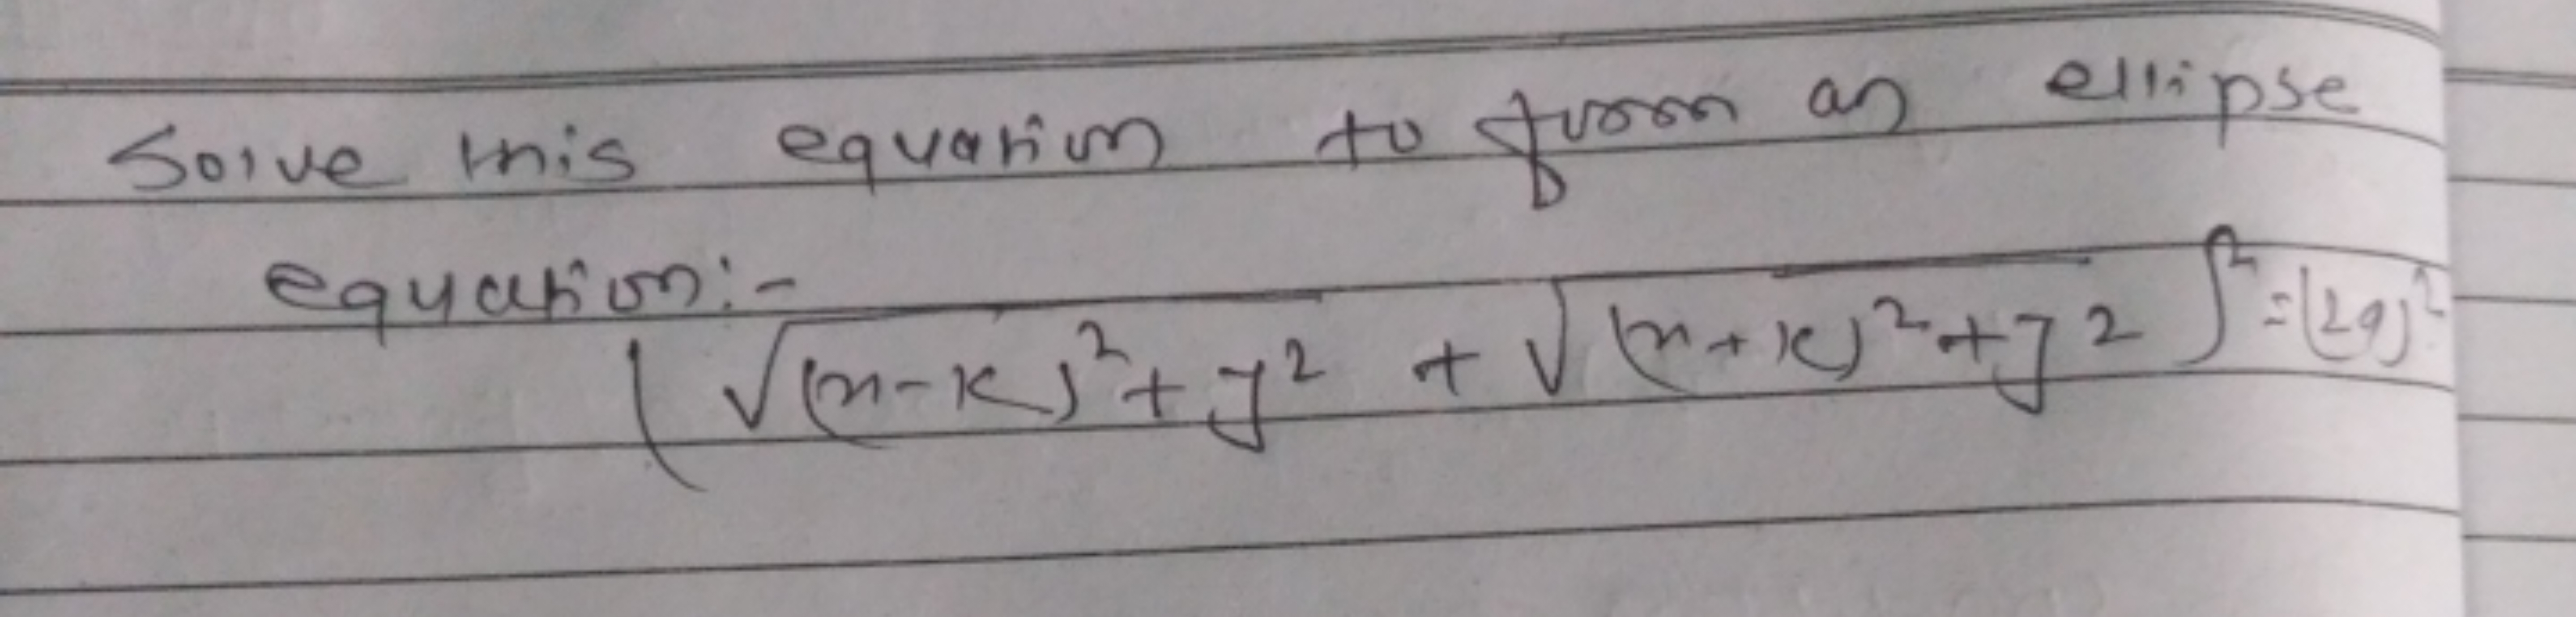 Solve this equation to form an ellipse
equation:-
(√(x-k)²+y² + √(x+k)²+y²)² = (2a)²